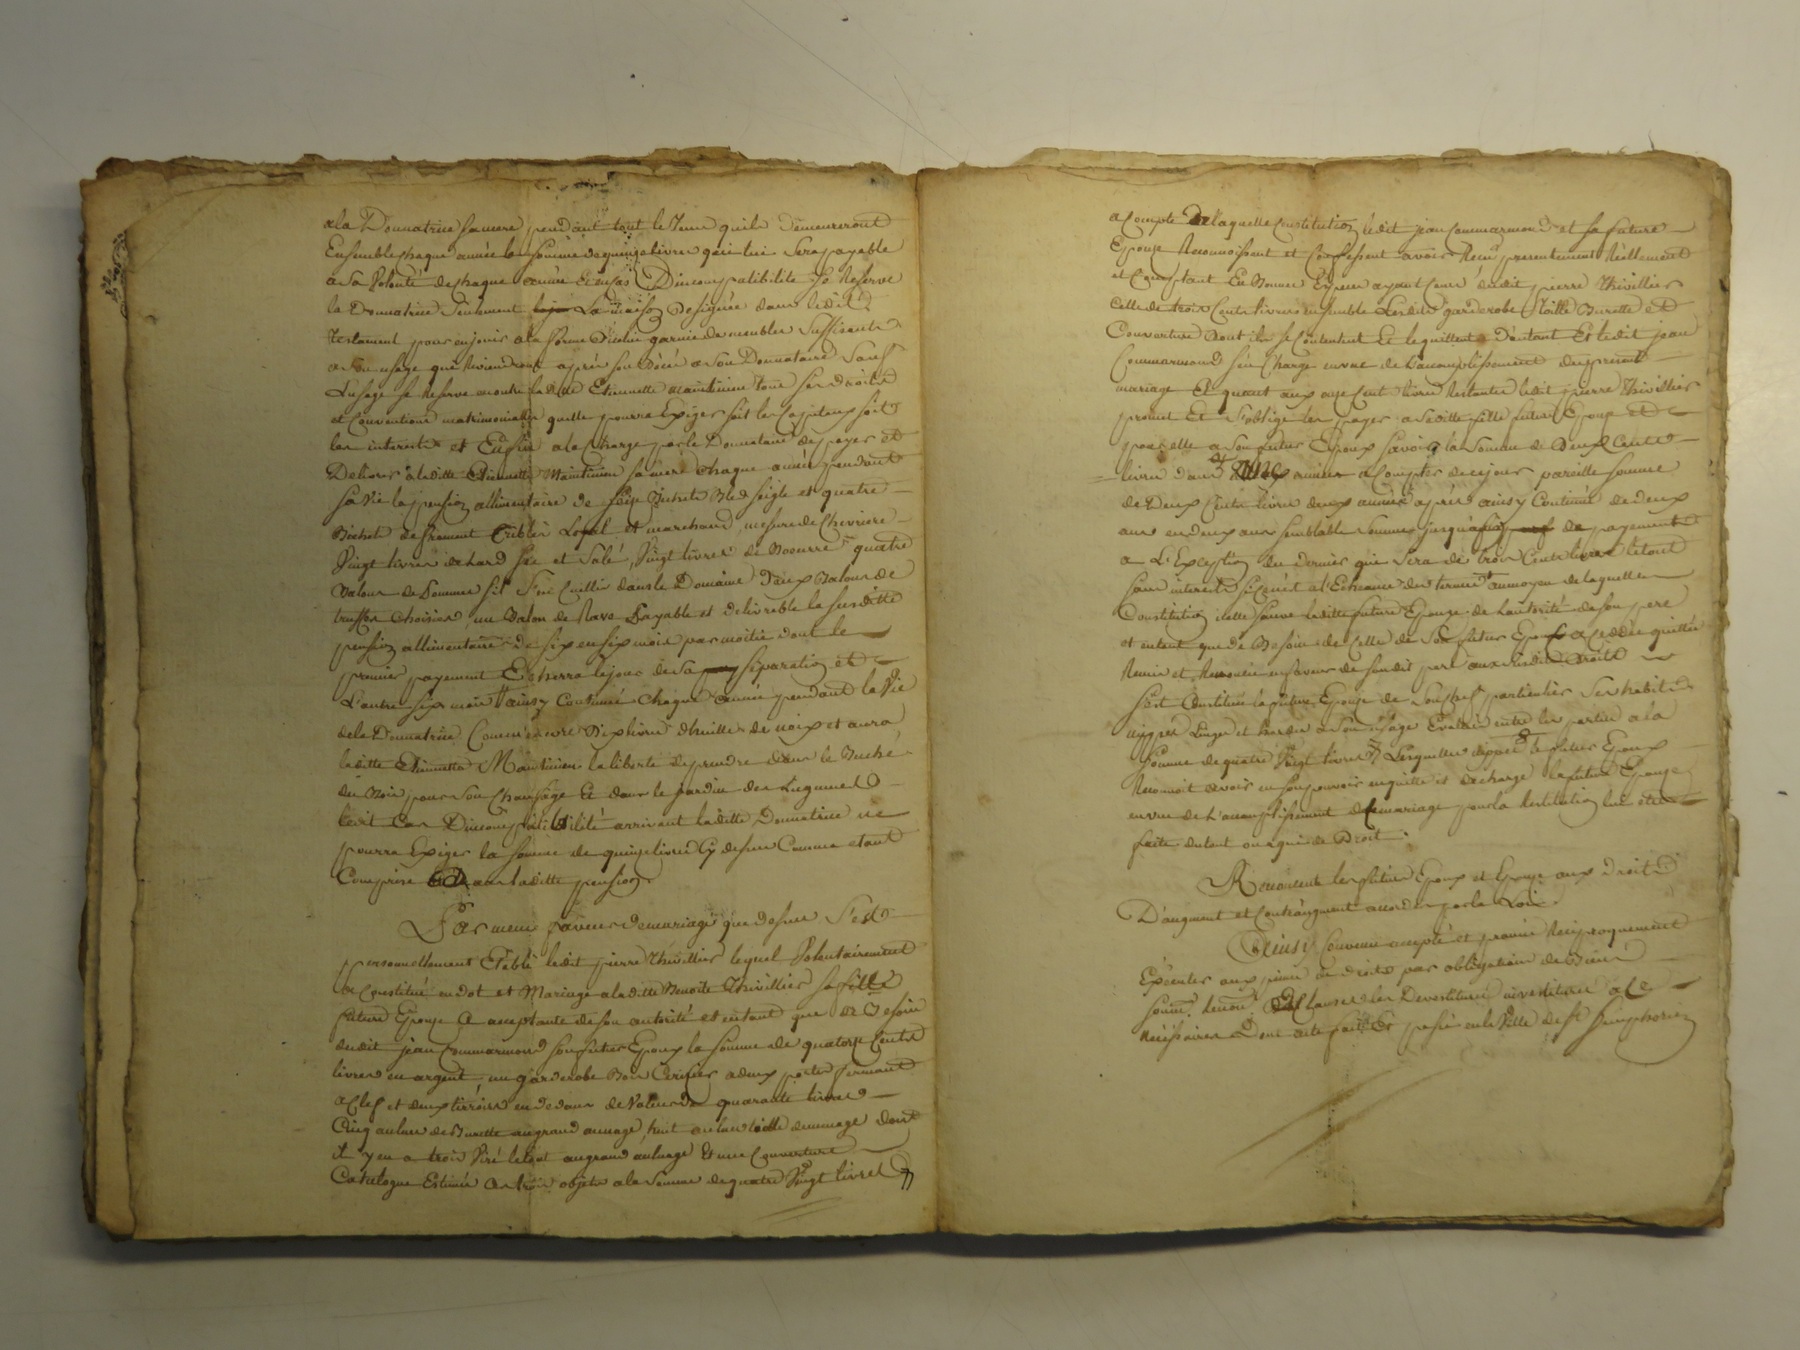 ala Donnatrice sa mere pendant tout le tems quils demeureront
Ensemble chaque année la somme de quinze livres qui lui sera payable
a sa volonté de chaque année Et en cas Dincompatibilité se Reserve
la Donnatrice seulement La maison Designée dans ledit
testament pour en jouir a la forme dicelui garnie de meubles suffisants
a son usage qui Reviendront après son Décès a son Donnataire sauf
L'usage se Reserve en outre ladite Etiennette Maintinieu tous ses droits
et Conventions matrimonialles quelle pourra Exiger soit les Capiteaux soit
les interests et Enfin a la Charge par le Donnataire de payer et
Delivrer à laditte Etiennette Maintinieu sa mere chaque année pendant
sa vie la pension allimentaire de seize Bichets Bled seigle et quatre
Bichets de froment Criblés Loyal et marchand mesure de Chevrieres
Vingt livres de Lard sec et salé, Vingt livres de Boeurre quatre
Balons de Pommes sil s'en Cuellie dans le Domaine deux Balons de
truffes choisies un Balon de Rave payable et delivrable la susditte
pension allimentaire de six en six mois par moitié dont le
premier payement Echerra le jour de sa separation et
L'autre six mois ainsy Continué Chaque année pendant la vie
de la Donnatrice Comm'encore Dix livres d'huille de noix et aura
laditte Etiennette Maintinieu la liberté de prendre dans le Buché
du Bois pour son Chaufage Et dans le jardin des Legumes
ledit Cas Dincompatibilité arrivant laditte Donnatrice ne
pourra Exiger la somme de quinze livres Cy dessus Comme etant
Comprise Dans laditte pension
Par meme faveur de mariage que dessus S'est
personnellement Etabli ledit pierre Thivillier lequel Volontairement
a Constitué en dot et Mariage a laditte Benoite Thivillier sa fille
future Epouse Ce acceptante de son autorité et entant que de Besoin
dudit jean Commarmond son futur Epoux la somme de quatorze Cents
livres en argent, un garderobe Bois Cerisier a deux portes fermant
a Clef et deux tirroirs en dedans de Valeur de quarante livres
Cinq aulnes de Burette au grand aunage, huit aulnes toille de menage dont
il y en a trois au grand aulnage Et une Couverture
Catalogne Estimés Ces trois objets a la somme de quatre Vingt livres
a Compte De laquelle Constitution ledit jean Commarmond et sa future
Epouse Reconnoissent et Confessent avoir Recu presentement Réellement
et Comptant En Bonnes Especes ayant Cours dudit pierre Thivillier
Celle de trois Cents livres ensemble Lesdits garderobe Toille Burette et
Couverture Dont ils se Contentent Et le quittent d'autant Et ledit jean
Commarmond s'en Charge en vue de L'accomplissement du present
mariage Et quant aux onze Cents livres Restantes ledit pierre Thivillier
promet Et S'oblige les payer a saditte fille future Epouse et
pour elle a son futur Epoux savoir la Somme de Deux Cents
livres dans années a Compter de ce jour pareille somme
de Deux Cents livres deux années après ainsy Continué de deux
ans en deux ans semblable somme jusqu'a payement
a L'Exception du dernier qui sera de trois Cents livres le tout
sans interests si Ce n'est a l'Echeance des termes au moyen de laquelle
Constitution icelle future Epouse de l'autorité de son pere
et entant que de Besoin de Celle de son futur Epoux a Ceddée quittée
Remis et Renoncée en faveur de sondit pere aux susdits droits
Sest Constituée la future Epouse de Son Chef particulier Ses habits
nippes Linges et hardes a Son usage Evalués entre les parties a la
Somme de quatre Vingt livres Lesquelles nippes le futur Epoux
Reconnoit avoir en son pouvoir en quitte et decharge la future Epouse
en vue de L'accomplissement de Ce mariage pour la Restitution lui etre
faite du tout ou a qui de Droit
Renoncent les futurs Epoux et Epouse aux droits
D'augment et Contr'augment accordés par la Loix.
Ainsy Convenu accepté et promis Reciproquement
Executer aux peines de droits par obligation de Biens
soumis. Renon. Clauses les Devestitures investitures a Ce
Necessaires Dont acte fait Et passé en la Ville de St Simphorien